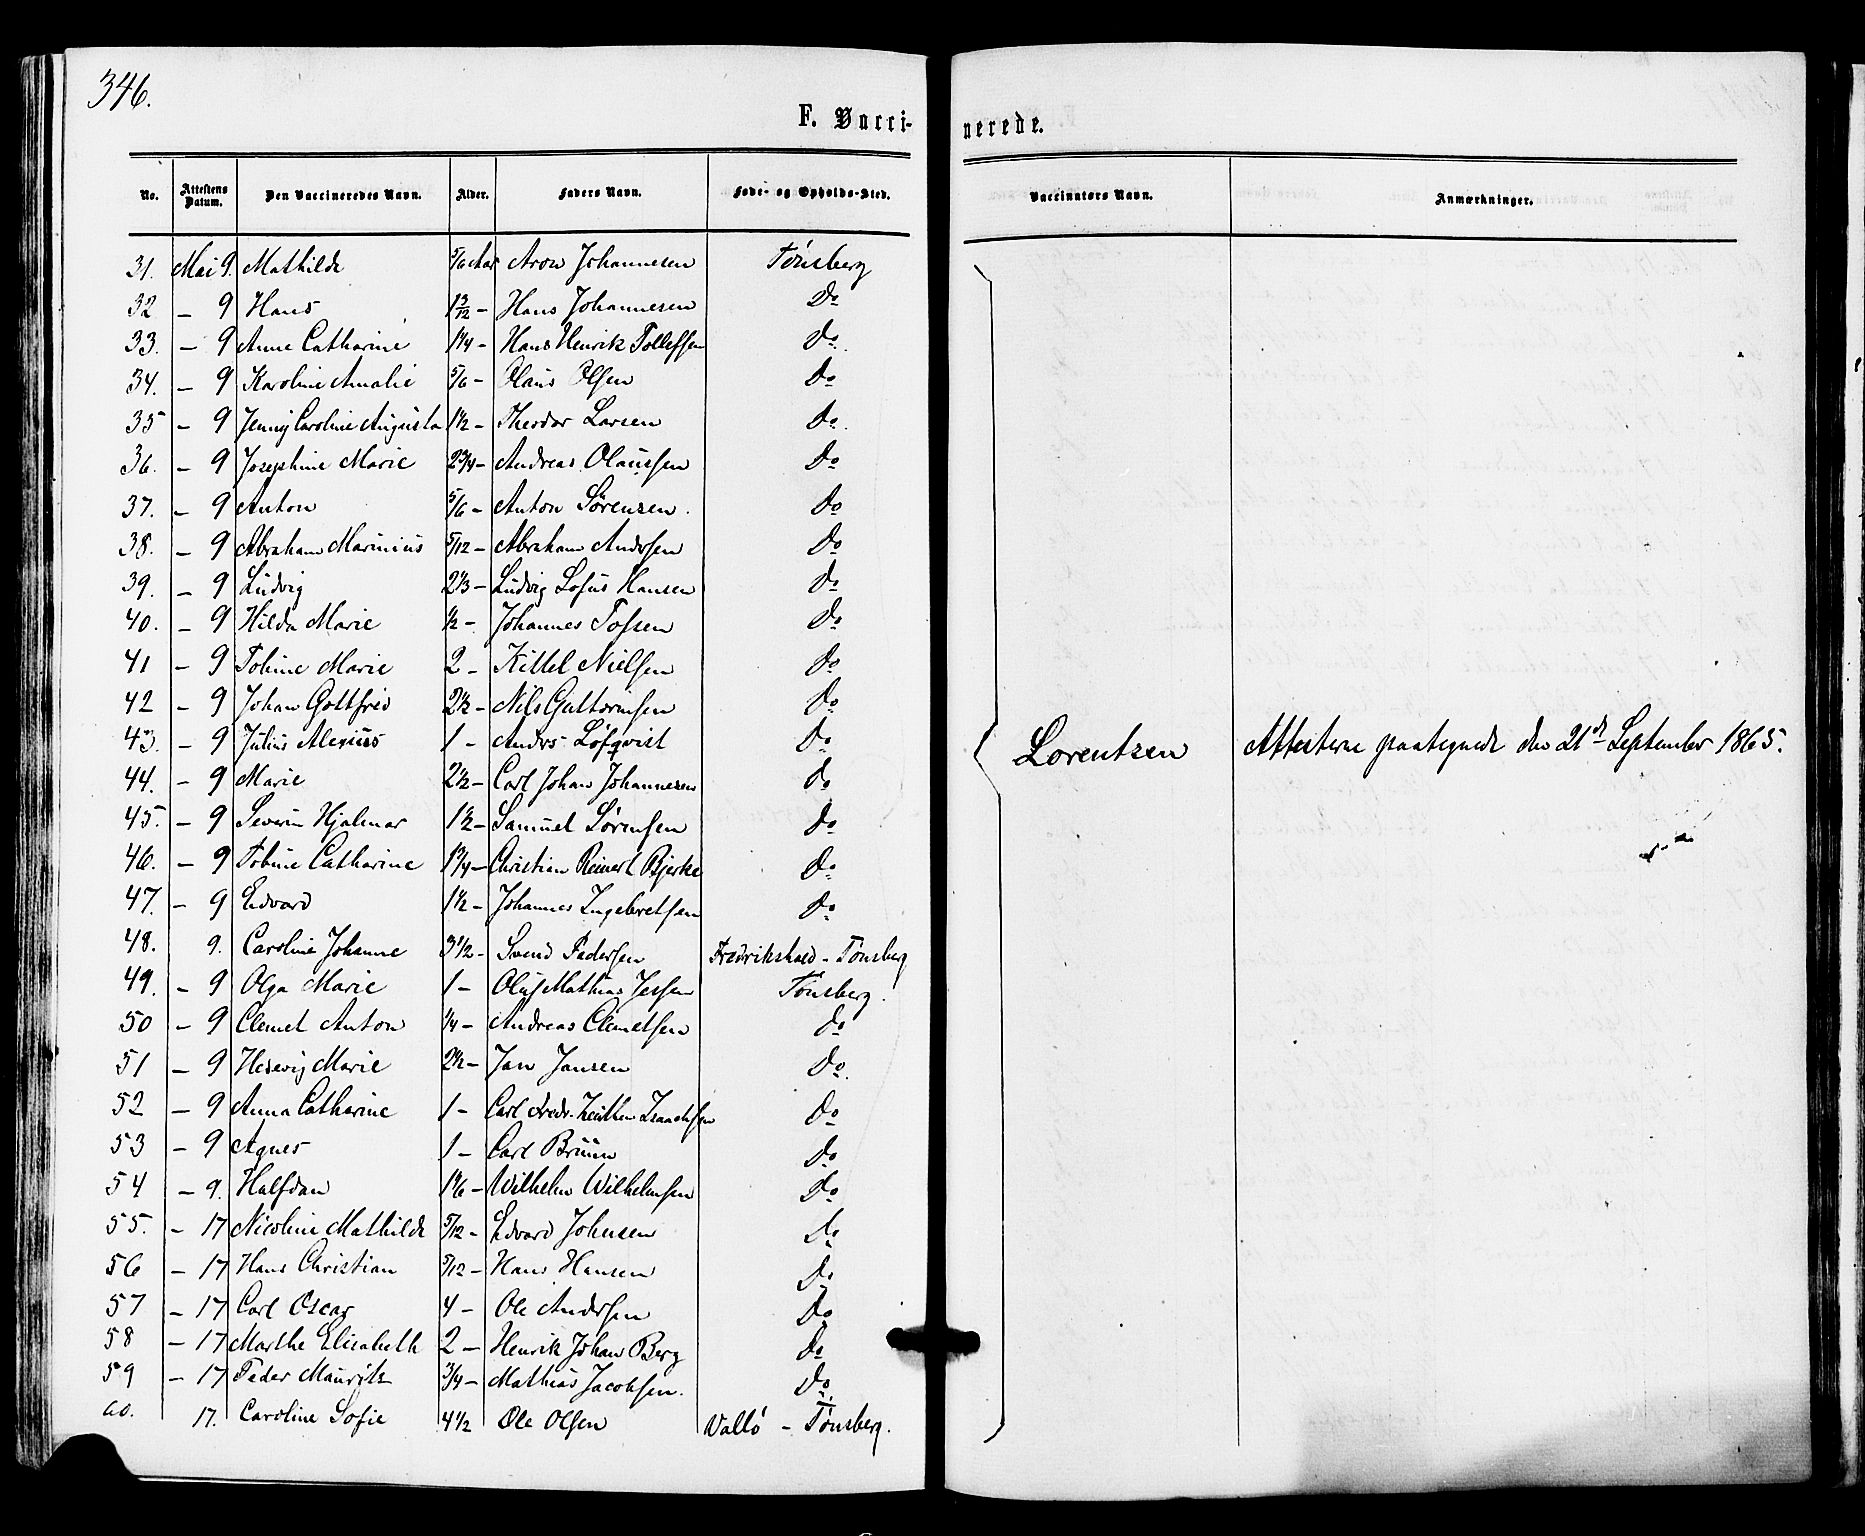 346.
F. Vacci- nerede.
No. Attestens Datum. Den Vaccineredes Navn. Alder. Faders Navn. Føde- og Opholds-Sted. Vaccinators Navn. Anmærkninger.
31. Mai 9. Mathilde 5/6 Aar Aron Johannesen Tønsberg
32 – 9 Hans 1 3/12 – Hans Johannesen Do
33. – 9 Anne Catharine 1 1/4 – Hans Henrik Tollefsen Do
34. – 9 Karoline Amalie 5/6 – Olaus Olsen Do
35 – 9 Jenny Caroline Augusta 1 1/2 – Theodor Larsen Do
36. – 9 Josephine Marie 2 3/4 – Andreas Olaussen Do
37. – 9 Anton 5/6 – Anton Sørensen. Do
38. – 9 Abraham Marinius 5/12 – Abraham Andersen Do
39. – 9 Ludvig 2 1/3 – Ludvig Sofus Hansen Do
40. – 9 Hilda Marie 1/2 – Johannes Tofsen Do
41 – 9 Tobine Marie 2 – Kittel Nielsen Do
42 – 9 Johan Gottfred 2 1/2 – Nils Guttormsen Do
43. – 9 Julius Alexius 1 – Anders Löfqvist Do Lorentzen Attesterne paategnede den 21de September 1865.
44. – 9 Marie 2 1/2 – Carl Johan Johannesen Do
45. – 9 Severin Hjalmar 1 1/2 – Samuel Sørensen Do
46. – 9 Tobine Catharine 1 3/4 – Christian Reinert Bjerke Do
47. – 9 Edvard 1 1/2 – Johannes Ingebretsen Do
48. 9. Caroline Johanne 3 1/2 – Svend Pedersen Fredrikshald – Tønsberg
49. – 9 Olga Marie 1 – Oluf Mathias Jessen Tønsberg.
50 – 9 Clemet Anton 1/4 – Andreas Clemetsen Do
51 – 9 Hedevig Marie 2 1/2 – Jan Jansen Do
52 – 9 Anna Catharine 1 – Carl Fredr. Isaachsen Do
53 – 9 Agnes 1 – Carl Bruun Do
54 – 9. Halfdan 1 1/6 – Wilhelm Wilhelmsen Do
55. – 17 Nicoline Mathilde 5/12 – Edvard Johnsen Do
56 – 17 Hans Christian 5/12 – Hans Hansen Do
57 – 17 Carl Oscar 4 – Ole Andersen Do
58 – 17 Marthe Elisabeth 2 – Henrik Johan Berg Do
59 – 17 Peder Mauritz 3/4 – Mathias Jacobsen. Do
60. 17. Caroline Sofie 4 1/2 Ole Olsen Vallø – Tønsberg.